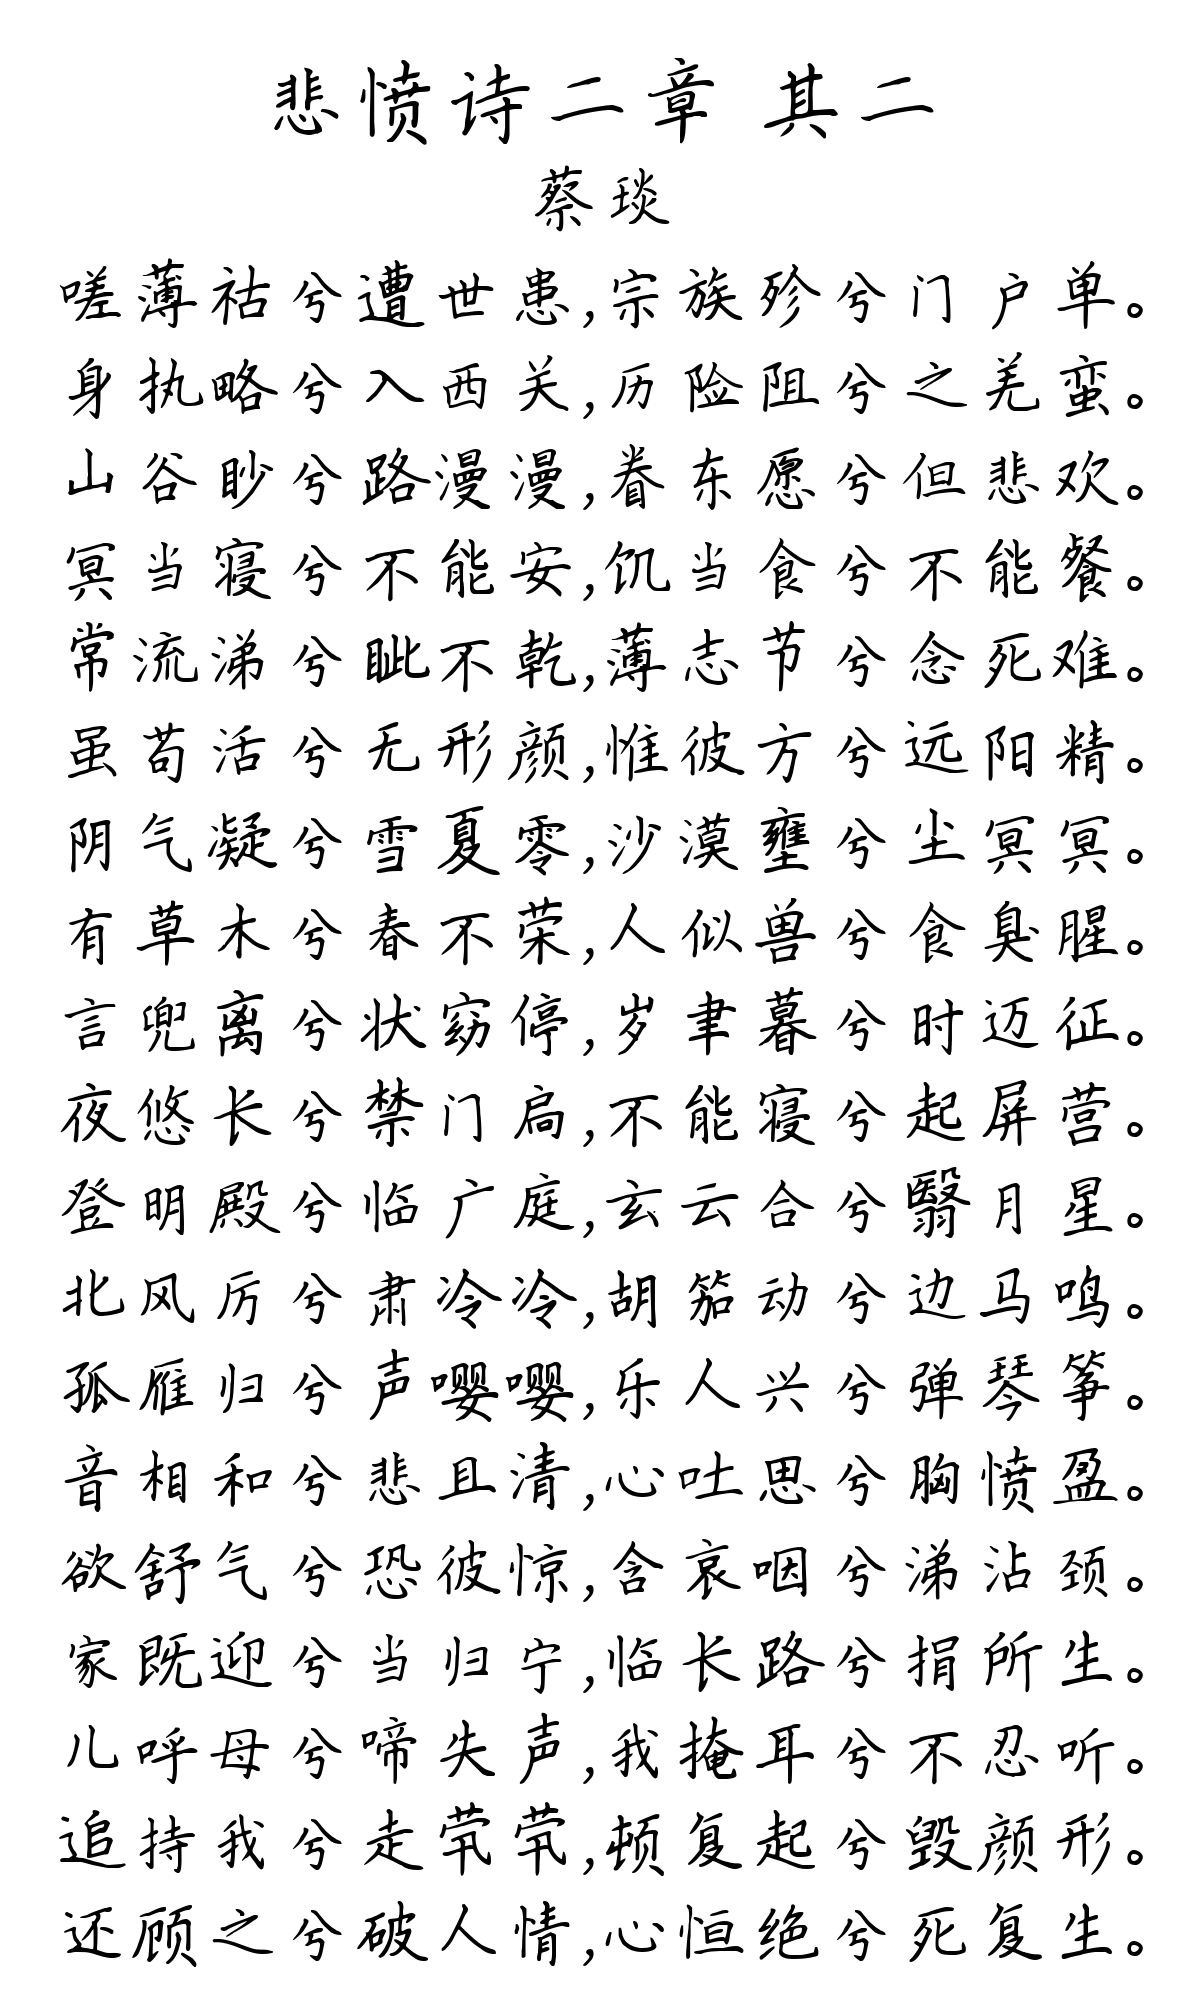 悲愤诗二章 其二
蔡琰
嗟薄祜兮遭世患,宗族殄兮门户单。
身执略兮入西关,历险阻兮之羌蛮。
山谷眇兮路漫漫,眷东愿兮但悲欢。
冥当寝兮不能安,饥当食兮不能餐。
常流涕兮眦不乾,薄志节兮念死难。
虽苟活兮无形颜,惟彼方兮远阳精。
阴气凝兮雪夏零,沙漠壅兮尘冥冥。
有草木兮春不荣,人似兽兮食臭腥。
言兜离兮状窈停,岁聿暮兮时迈征。
夜悠长兮禁门扃,不能寝兮起屏营。
登明殿兮临广庭,玄云合兮翳月星。
北风厉兮肃冷冷,胡笳动兮边马鸣。
孤雁归兮声嘤嘤,乐人兴兮弹琴筝。
音相和兮悲且清,心吐思兮胸愤盈。
欲舒气兮恐彼惊,含哀咽兮涕沾颈。
家既迎兮当归宁,临长路兮捐所生。
儿呼母兮啼失声,我掩耳兮不忍听。
追持我兮走茕茕,顿复起兮毁颜形。
还顾之兮破人情,心恒绝兮死复生。